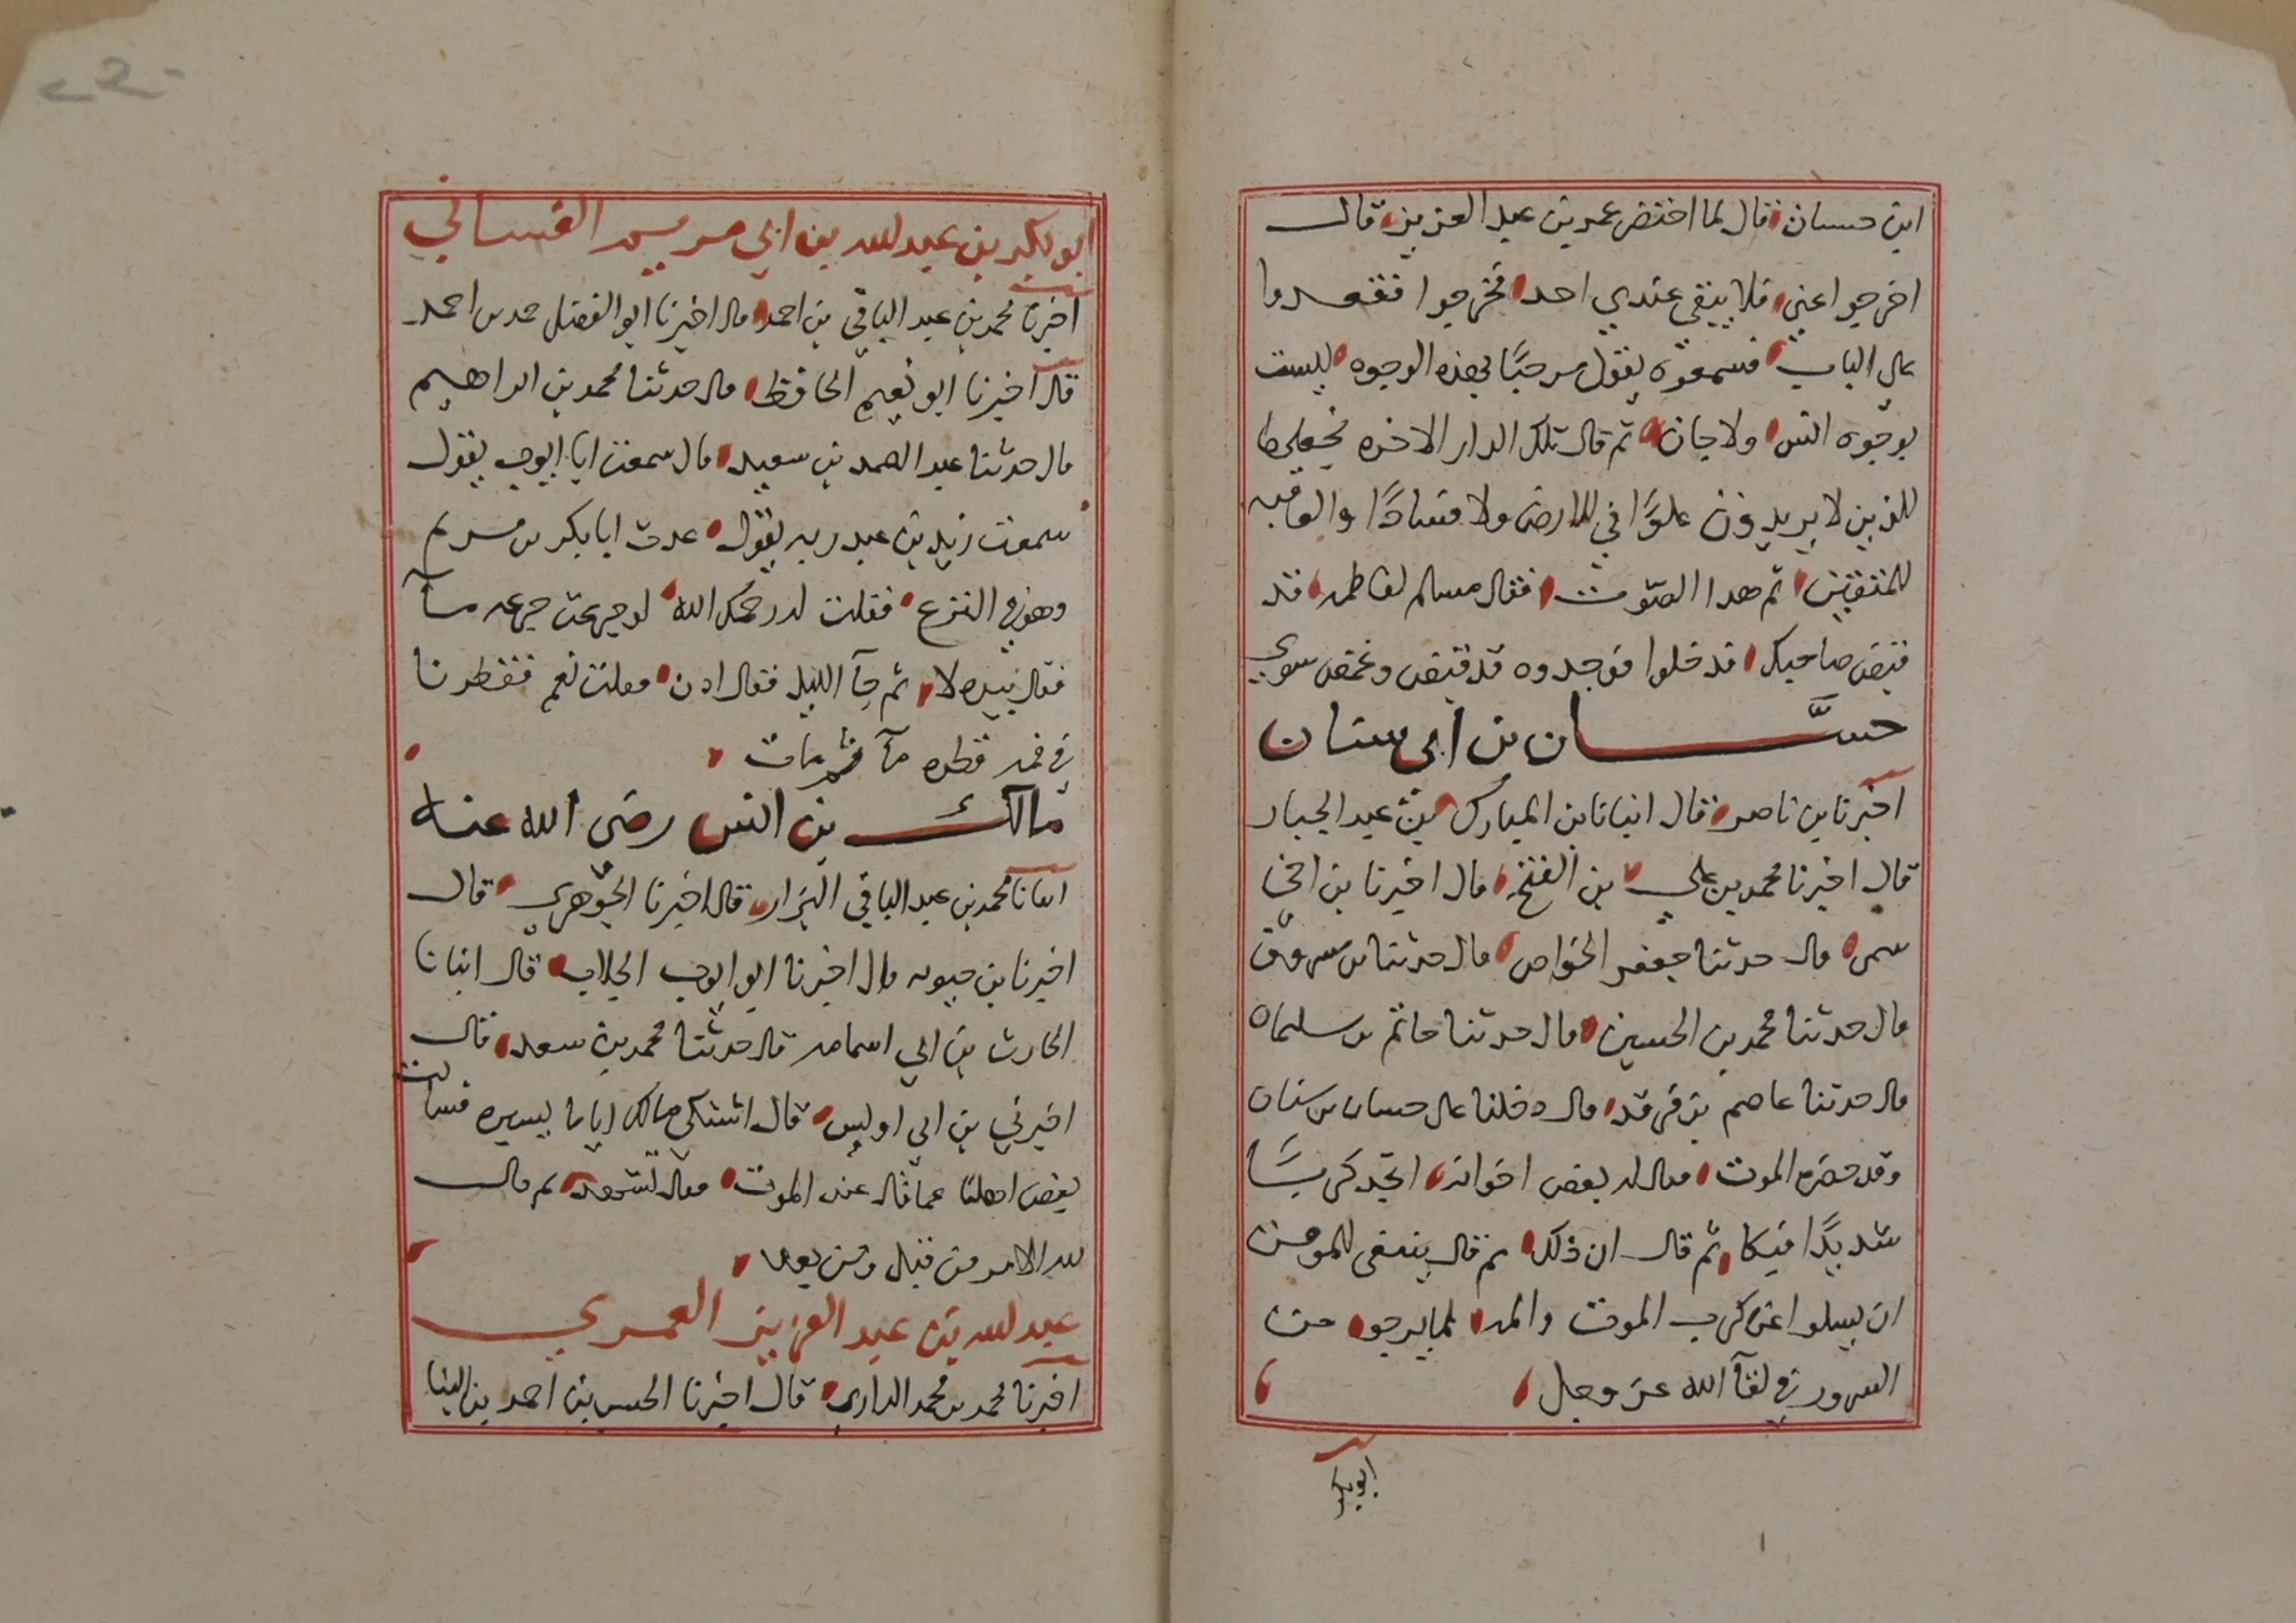 ابن حسان قال لما احتضر عمر بن عبد العزيز قال
اخرجوا عني فلا يبقى عندي احد فخرجوا فقعدوا
على الباب فسمعوه يقول مرحبًا بهذه الوجوه ليست
بوجوه انس ولا جان ثم قال تلك الدار الاخره نجعلها
للذين لا يريدون علوًا في الارض ولا فسادًا والعاقبه
للمتقين ثم هدا الصوت فقال مسلم لفاطمه قد
قبض صاحبك فدخلوا فوجدوه قد قبض وغمض سوي
حسَّان بن ابي سنان
اخبرنا بن ناصر قال انبانا بن المبارك بن عبد الجبار
قال اخبرنا محمد بن علي بن الفتح قال اخبرنا بن اخي
سمى قال حدثنا جعفر الخواص قال حدثنا بن مسروق
قال حدثنا محمد بن الحسين قال حدثنا حاتم بن سليمان
قال حدثنا عاصم بن فرقد قال دخلنا على حسان بن سنان
وقد حضره الموت فقال له بعض اخوانه اتجد كربًا
شديدًا فبكا ثم قال ان ذلك ثم قال ينبغي للمومن
ان يسلوا عن كرب الموت والمه لما يرجوه من
السرور في لقآ الله عز وجل
ابو بكر
ابو بكر بن عبد الله بن ابي مريم الغساني
اخبرنا محمد بن عبد الباقي بن احمد قال اخبرنا ابو الفضل حمد بن احمد
قال اخبرنا ابو نعيم الحافظ قال حدثنا محمد بن ابراهيم
قال حدثنا عبد الصمد بن سعيد قال سمعت ابا ايوب يقول
سمعت زيد بن عبد ربه يقول عدت ابا بكر بن مريم
وهو في النزع فقلت له رحمك الله لو جرعت جرعه مآ
فقال بيده لا ثم جآ الليل فقال اذن فقلت نعم فقطرنا
في فمه قطره مآ ثم مات
مالك بن انس رضى الله عنه
انبانا محمد بن عبد الباقي البزار قال اخبرنا الجوهري قال
اخبرنا بن حيويه قال اخبرنا ابو ايوب الجلاب قال انبانا
الحارث بن ابي اسامه قال حدثنا محمد بن سعد قال
اخبرني بن ابي اويس قال اشتكى مالك اياما يسيره فسالت
بعض اهلنا عما قال عند الموت فقال تشهد ثم قال
لله الامر من قبل ومن بعد
عبد الله بن عبد العزيز العمري
اخبرنا محمد بن محمد الداري قال اخبرنا الحسن بن احمد بن البنا